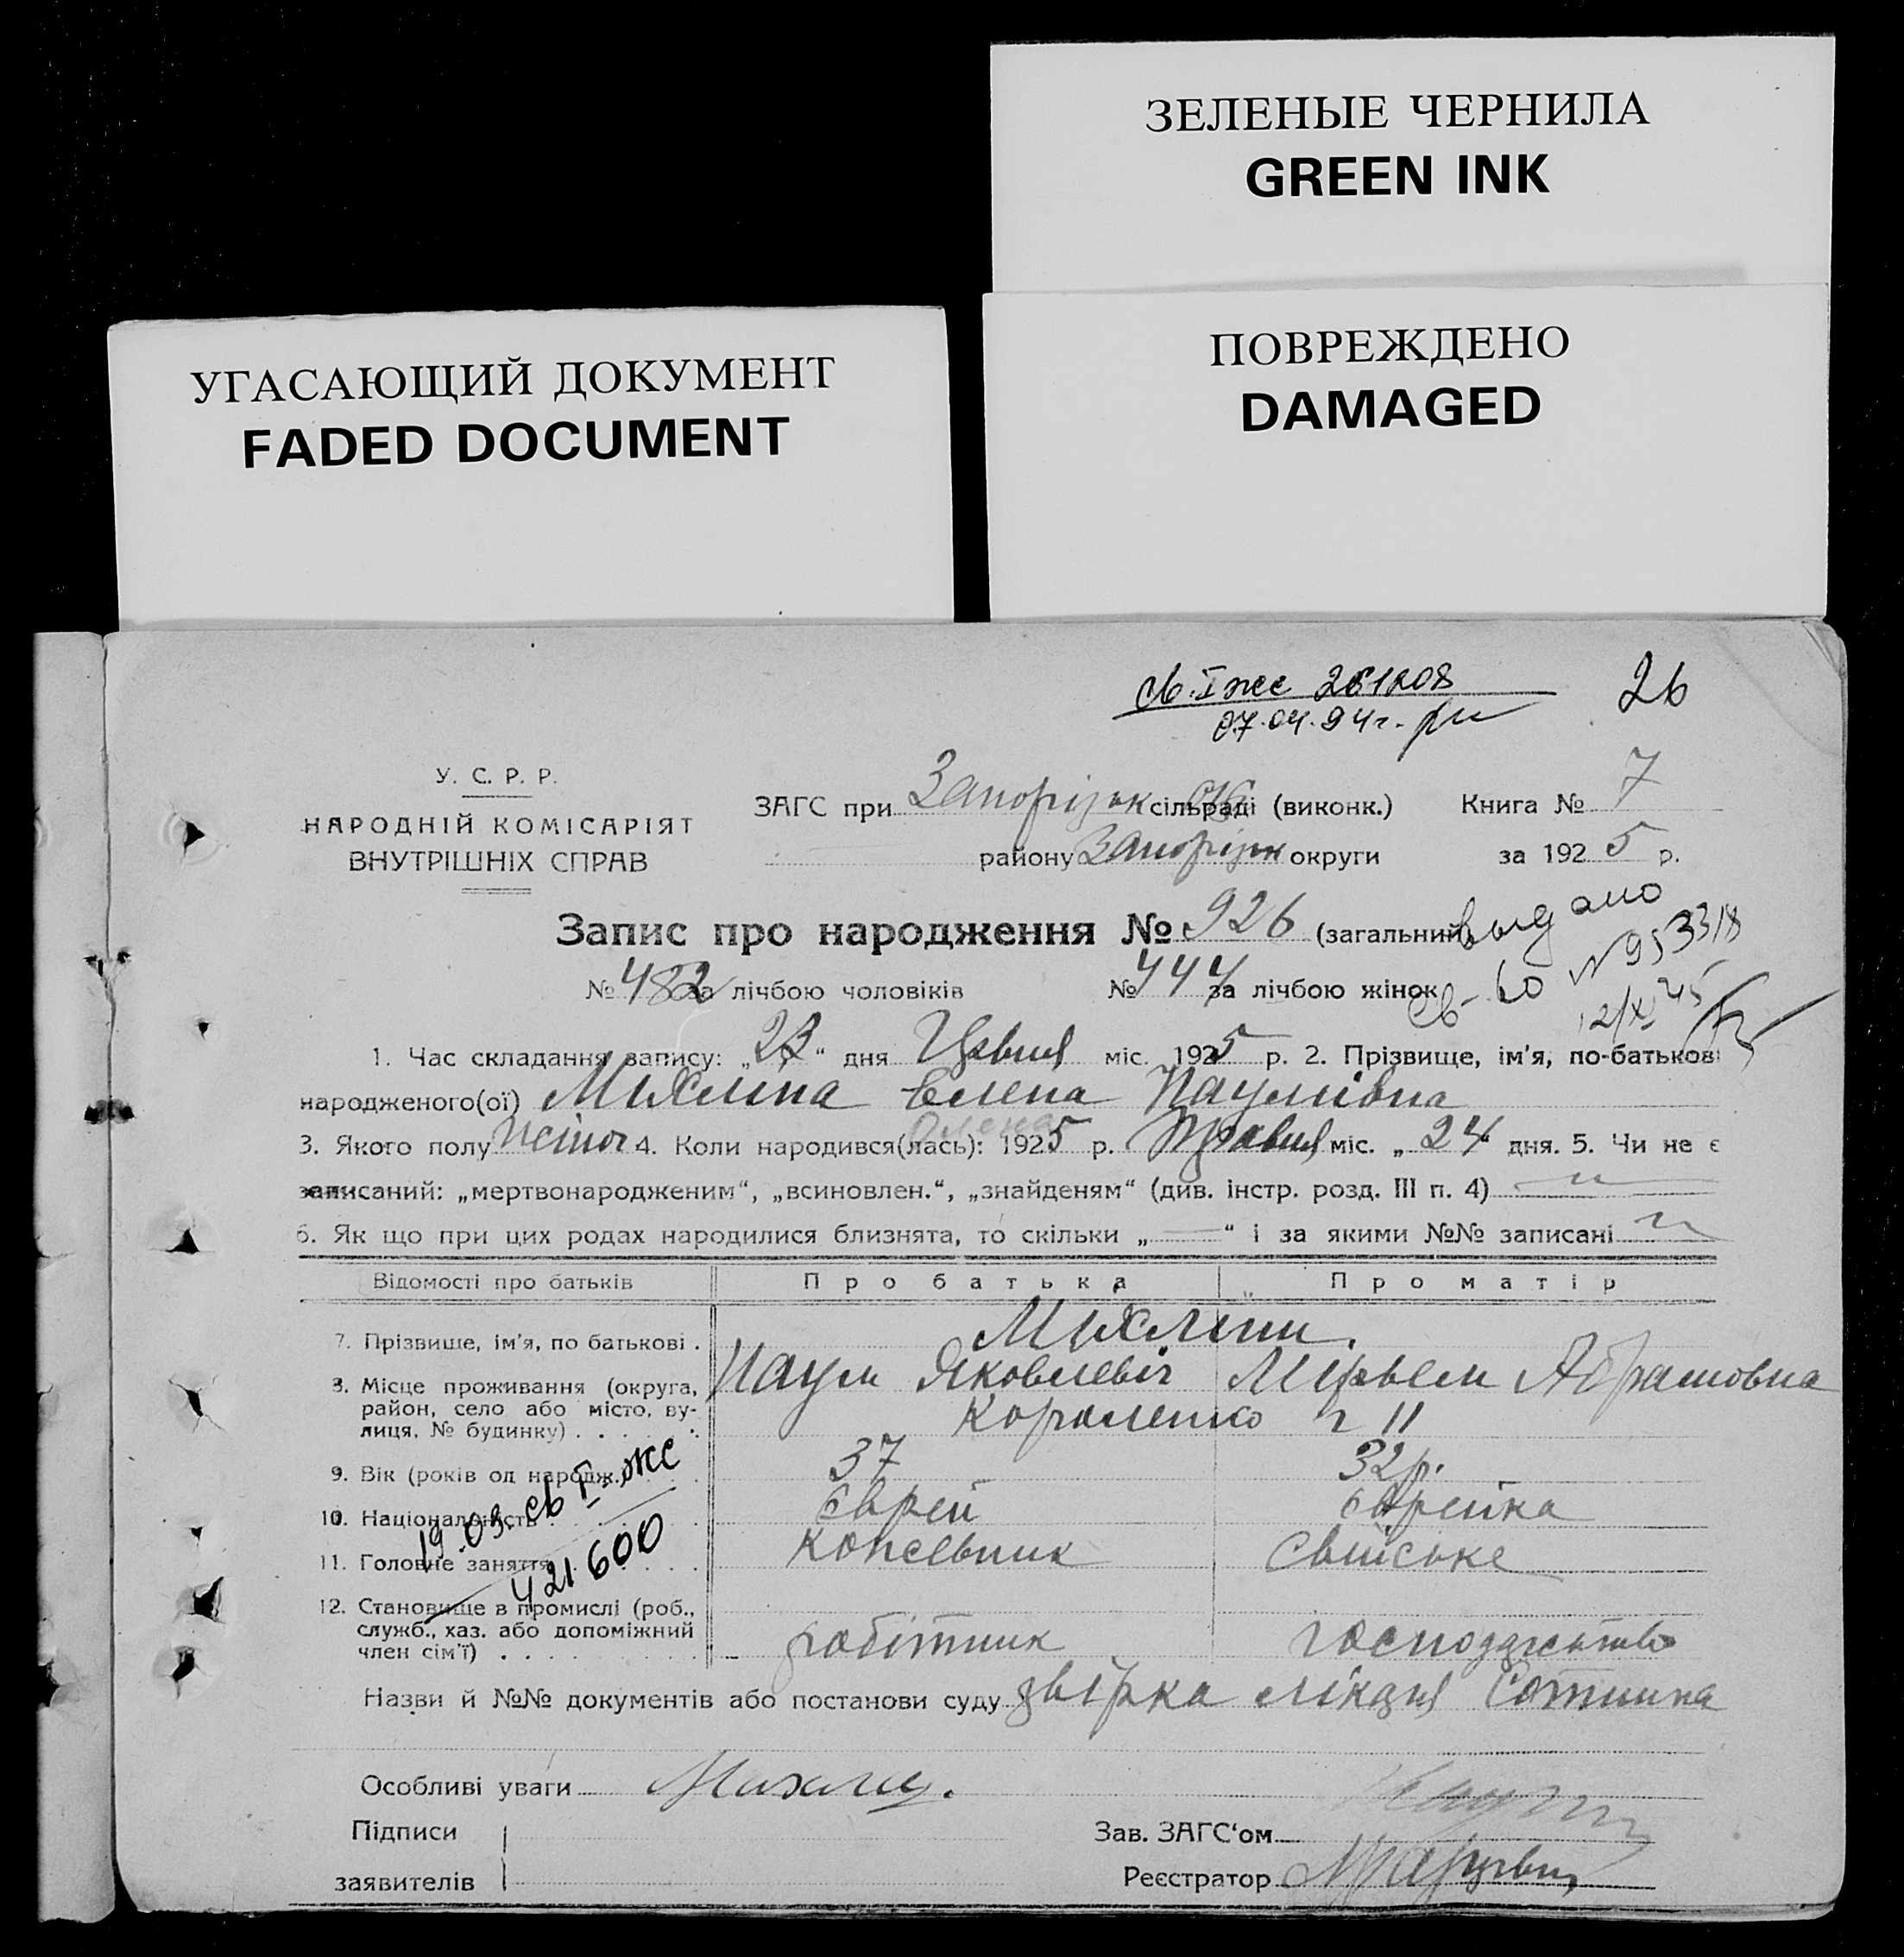 ЗЕЛЕНЫЕ ЧЕРНИЛА
GREEN INK
УГАСАЮЩИЙ ДОКУМЕНТ
FADED DOCUMENT
ПОВРЕЖДЕНО
DAMAGED
26
07.04.94г.
У. С. Р. Р.
НАРОДНІЙ КОМІСАРІЯТ
ВНУТРІШНІХ СПРАВ
ЗАГС при Запорізьк сільраді (виконк.) Книга № 7
району Запорізьк округи за 1925 р.
Запис про народження № 926 (загальний)
видано
№ 482 за лічбою чоловіків № 444 за лічбою жінок
1. Час складання запису: „23“ дня міс. 1925 р. 2. Прізвище, ім'я, по-батькові
народженого(ої) Михліна Елена Наумівна
Олена
3. Якого полу жіноч 4. Коли народився(лась): 1925 р. міс. „24 дня. 5. Чи не є
записаний: „мертвонародженим“, „всиновлен.“, „знайденям“ (див. інстр. розд. III п. 4)
6. Як що при цих родах народилися близнята, то скільки „—“ і за якими №№ записані
Відомості про батьків Про батька Про матір
7. Прізвище, ім'я, по батькові . Михліни.
Наум Яковлевіч Мірьем Абрамовна
8. Місце проживання (округа, район, село або місто, вулиця, № будинку) Короленко 11
9. Вік (років од народж.) 37 32 р.
10. Національність Єврей Єврейка
11. Головне заняття свійське
12. Становище в промислі (роб., служб., хаз. або допоміжний член сім'ї) робітник господарство
19.03. св I жс
421600
Назви й №№ документів або постанови суду звірка лікаря
Особливі уваги
Підписи
Зав. ЗАГС'ом
заявителів
Реєстратор